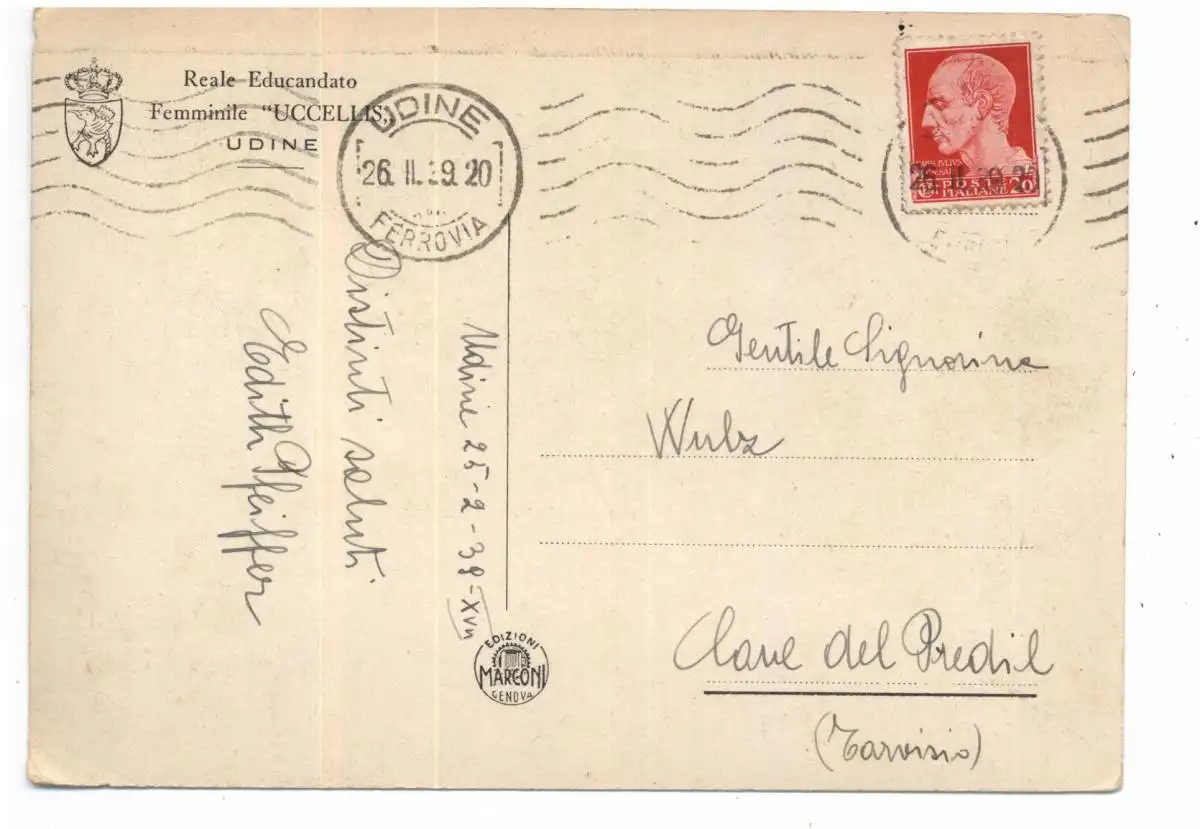 Reale Educandato
Femminile "UCCELLIS„
UDINE
UDINE
26. II. 39. 20
FERROVIA
POSTE
ITALIANE
20
26. II. 39. 20
Distinti saluti
Edith Pfeiffer
Udine 25-2-39-XVII
Gentile Signorina
Wulz
Cave del Predil
(Tarvisio)
EDIZIONI
MARCONI
GENOVA